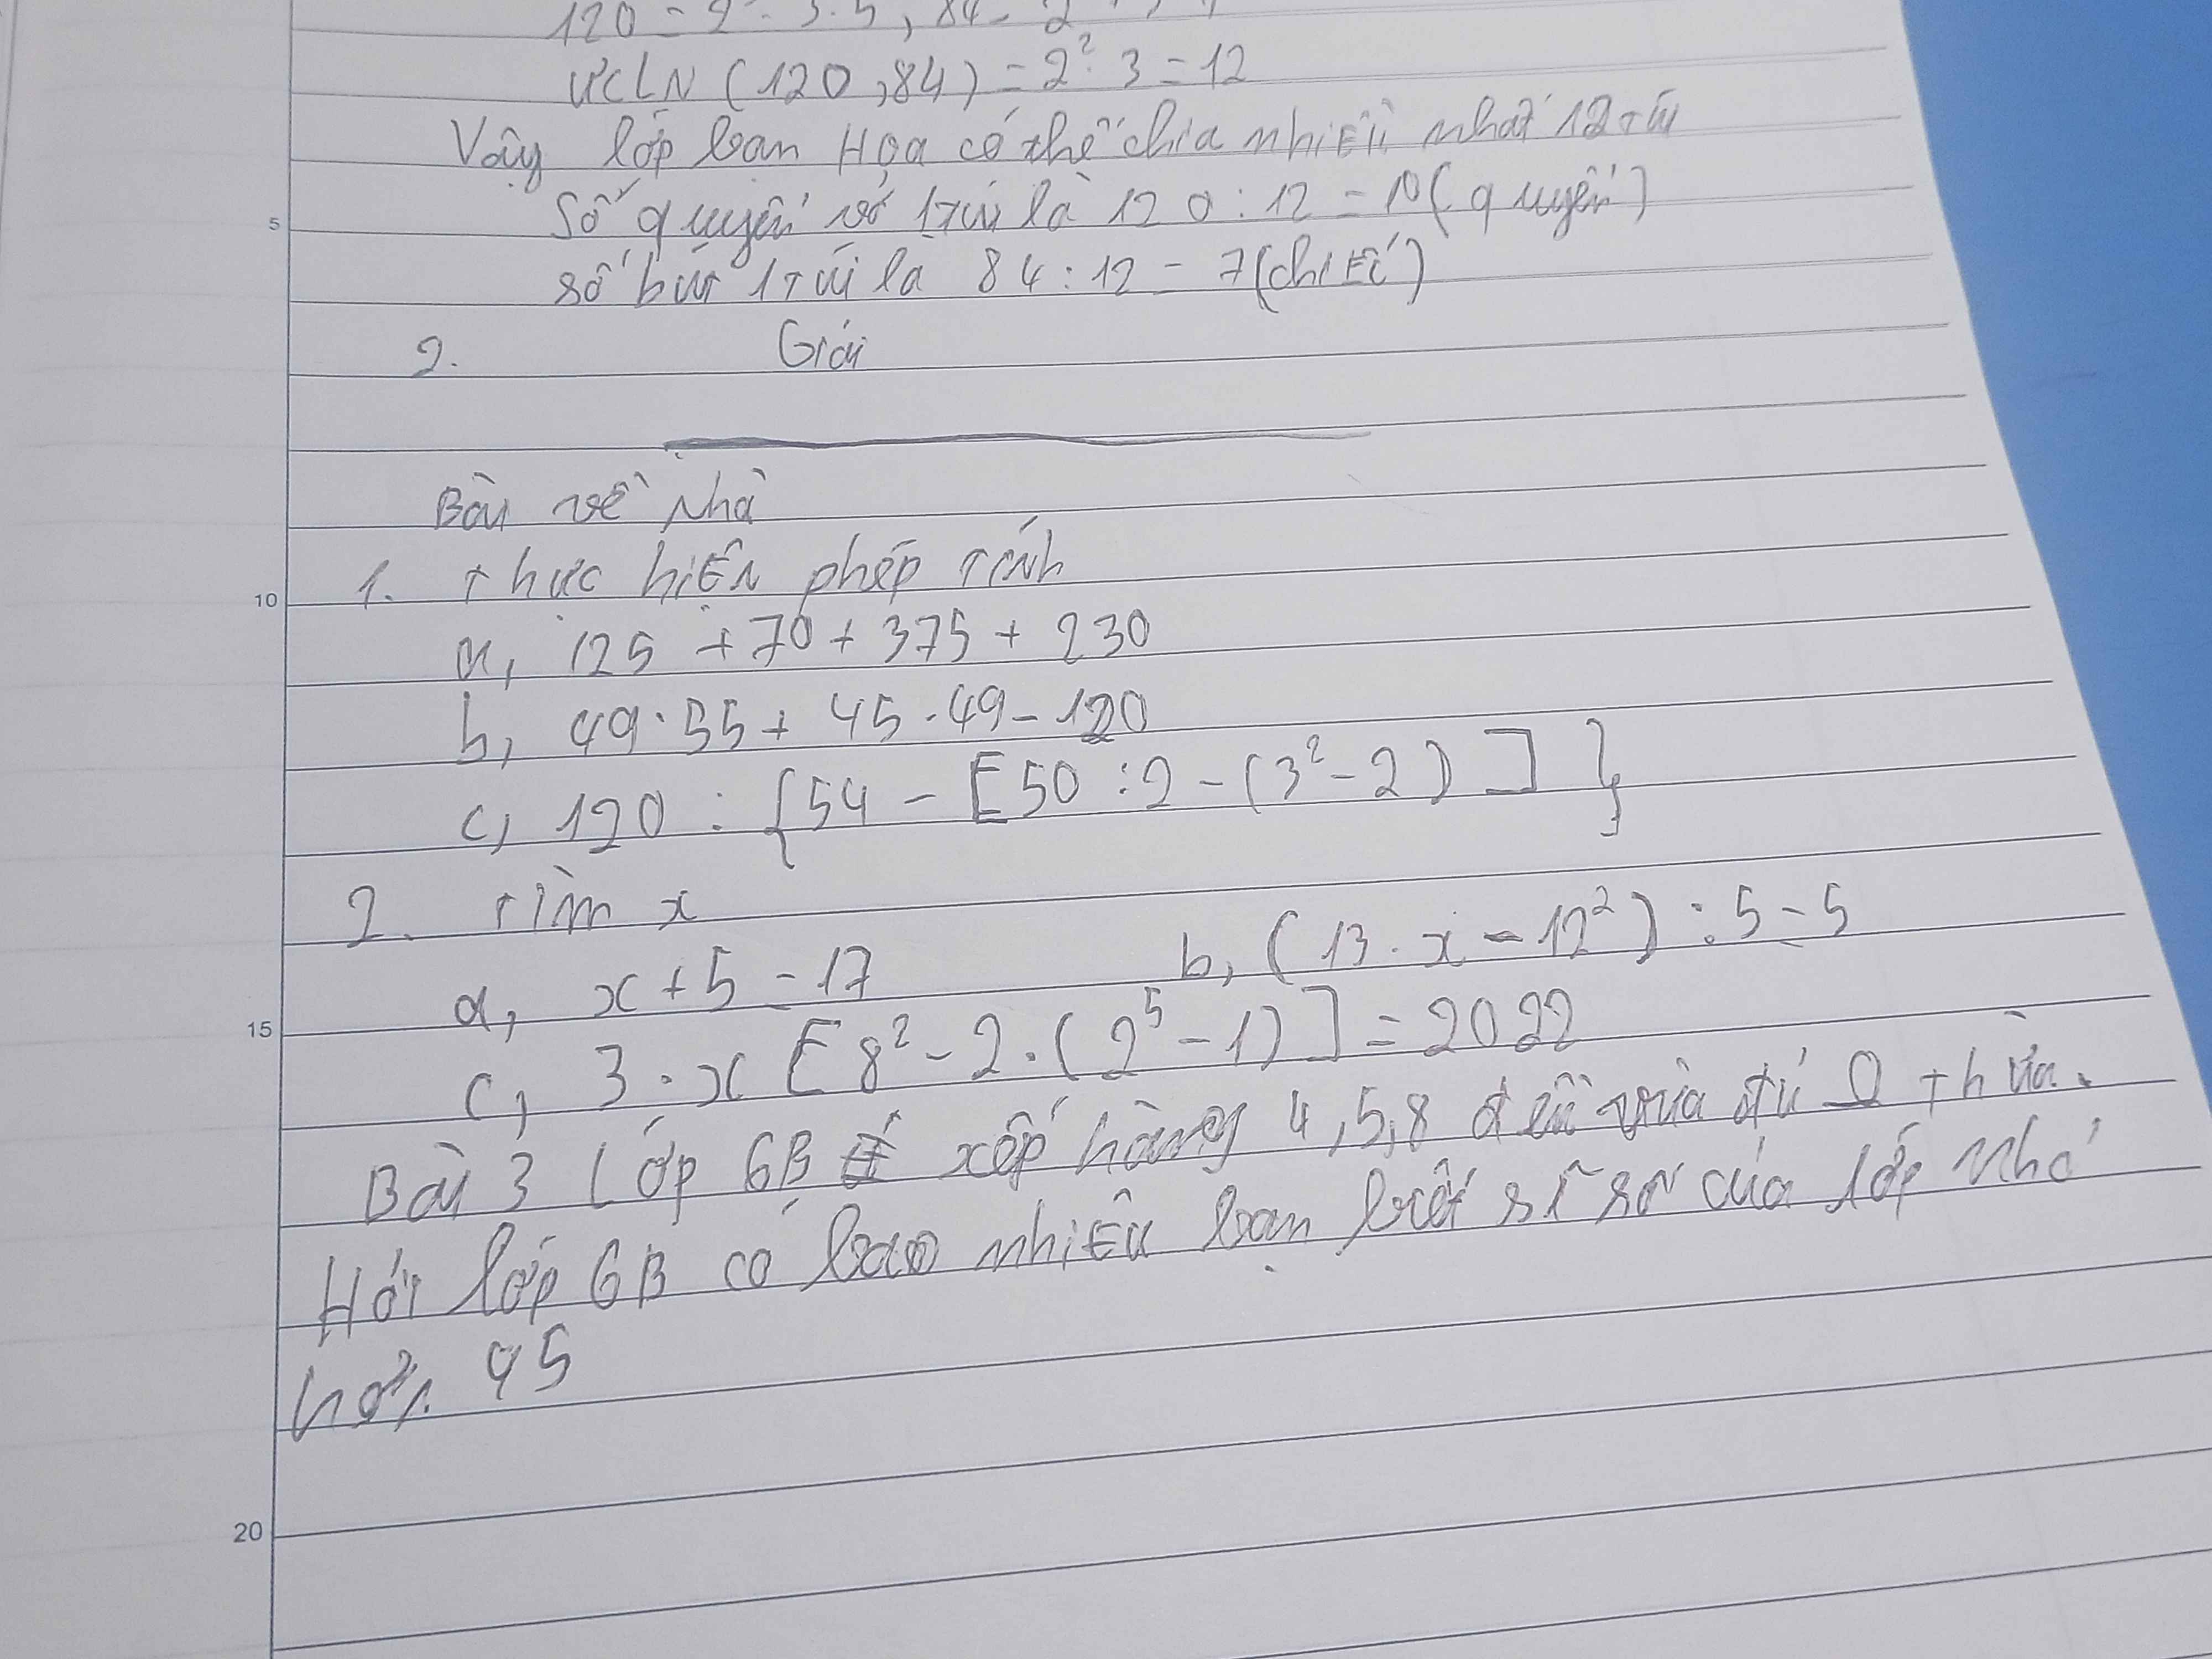 120 = 2 . 3.5, 84 = 2
ƯCLN (120,84) = 2². 3 = 12
Vậy lớp bạn Hoa có thể chia nhiều nhất 12 túi
Số quyển vở 1 túi là 120 : 12 = 10 (quyển)
5
số bút 1 túi là 84 : 12 = 7 (chiếc)
2. Giải
Bài về nhà
1. Thực hiện phép tính
10
a, 125 + 70 + 375 + 230
b, 49 . 55 + 45 . 49 - 120
c, 120 : {54 - [50 : 2 - (3² - 2)]}
2. Tìm x
a, x + 5 = 17 b, (13 . x - 12²) : 5 = 5
15
c, 3 . x [8² - 2 . (2⁵ - 1)] = 2022
Bài 3 Lớp 6B xếp hàng 4,5,8 đều vừa đủ thừa.
Hỏi lớp 6B có bao nhiêu bạn biết sĩ số của lớp nhỏ
hơn 45
20